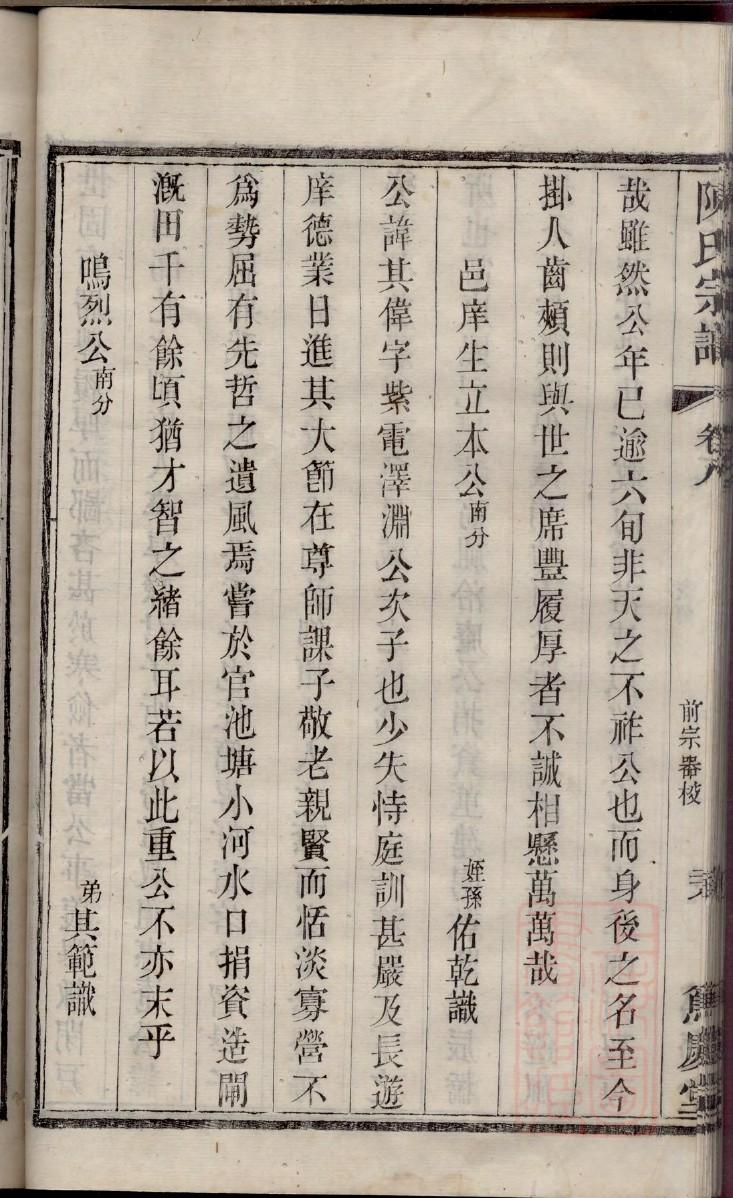 陳氏宗譜 卷八 前宗器校 篤慶堂
哉雖然公年已逾六旬非天之不祚公也而身後之名至今
掛人齒頰則與世之席豐履厚者不誠相懸萬萬哉
邑庠生立本公南分 姪孫佑乾識
公諱其偉字紫電澤淵公次子也少失恃庭訓甚嚴及長遊
庠德業日進其大節在尊師課子敬老親賢而恬淡寡營不
爲勢屈有先哲之遺風焉嘗於官池塘小河水口捐資造閘
溉田千有餘頃猶才智之緒餘耳若以此重公不亦末乎
鳴烈公南分 弟其範識